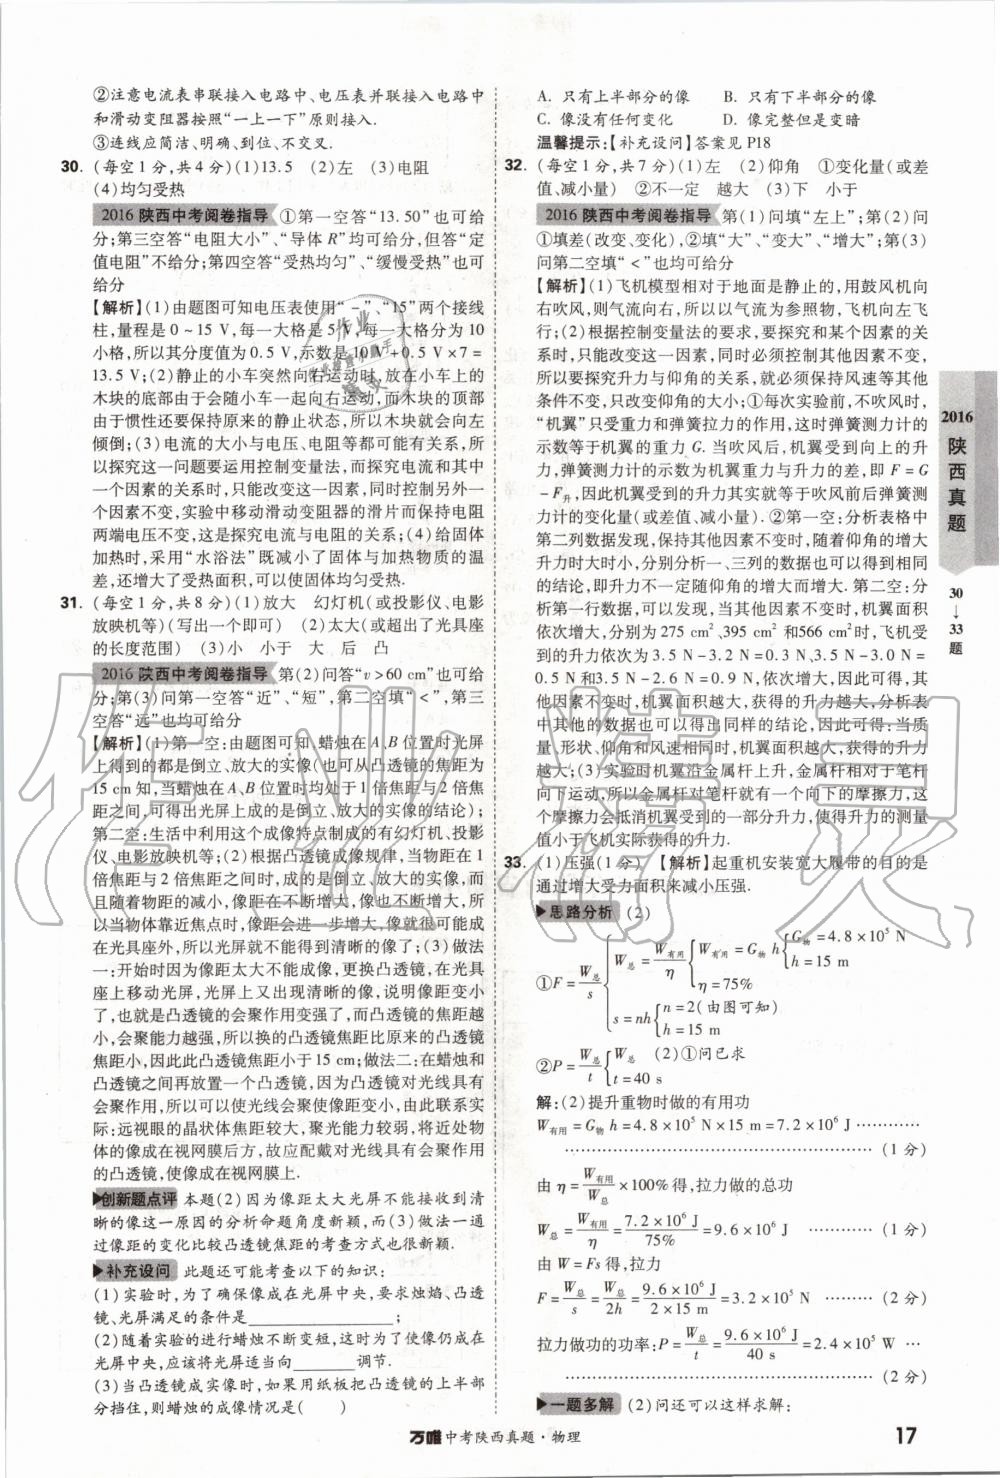 ②注意电流表串联接入电路中、电压表并联接入电路中
和滑动变阻器按照“一上一下”原则接入.
③连线应简洁、明确、到位、不交叉.
30. (每空1分,共4分)(1)13.5 (2)左 (3)电阻
(4)均匀受热
2016陕西中考阅卷指导 ①第一空答“13.50”也可给
分;第三空答“电阻大小”、“导体R”均可给分,但答“定
值电阻”不给分;第四空答“受热均匀”、“缓慢受热”也可
给分
【解析】(1)由题图可知电压表使用“-”、“15”两个接线
柱,量程是0~15 V,每一大格是5 V,每一大格分为10
小格,所以其分度值为0.5 V,示数是10 V+0.5 V×7=
13.5 V;(2)静止的小车突然向右运动时,放在小车上的
木块的底部由于会随小车一起向右运动,而木块的顶部
由于惯性还要保持原来的静止状态,所以木块就会向左
倾倒;(3)电流的大小与电压、电阻等都可能有关系,所
以探究这一问题要运用控制变量法,而探究电流和其中
一个因素的关系时,只能改变这一因素,同时控制另外一
个因素不变,实验中移动滑动变阻器的滑片而保持电阻
两端电压不变,这是探究电流与电阻的关系;(4)给固体
加热时,采用“水浴法”既减小了固体与加热物质的温
差,还增大了受热面积,可以使固体均匀受热.
31. (每空1分,共8分)(1)放大 幻灯机(或投影仪、电影
放映机等)(写出一个即可) (2)太大(或超出了光具座
的长度范围) (3)小 小于 大 后 凸
2016陕西中考阅卷指导 第(2)问答“v>60 cm”也可给
分;第(3)问第一空答“近”、“短”,第二空填“<”,第三
空答“远”也均可给分
【解析】(1)第一空:由题图可知,蜡烛在A、B位置时光屏
上得到的都是倒立、放大的实像(也可从凸透镜的焦距为
15 cm知,当蜡烛在A、B位置时均处于1倍焦距与2倍焦
距之间,可得出光屏上成的是倒立、放大的实像的结论);
第二空:生活中利用这个成像特点制成的有幻灯机、投影
仪、电影放映机等;(2)根据凸透镜成像规律,当物距在1
倍焦距与2倍焦距之间时,成的是倒立、放大的实像,而
且随着物距的减小,像距在不断增大,像也不断增大,所
以当物体靠近焦点时,像距会进一步增大,像就很可能成
在光具座外,所以光屏就不能得到清晰的像了;(3)做法
一:开始时因为像距太大不能成像,更换凸透镜,在光具
座上移动光屏,光屏上又出现了清晰的像,说明像距变小
了,也就是凸透镜的会聚作用变强了,而凸透镜的焦距越
小,会聚能力越强,所以换的凸透镜焦距比原来的凸透镜
焦距小,因此此凸透镜焦距小于15 cm;做法二:在蜡烛和
凸透镜之间再放置一个凸透镜,凸透镜对光线具有
会聚作用,所以可以使光线会聚使像距变小,由此联系实
际:远视眼的晶状体焦距较大,聚光能力较弱,将近处物
体的像成在视网膜后方,故应配戴对光线具有会聚作用
的凸透镜,使像成在视网膜上.
创新题点评 本题(2)因为像距太大光屏不能接收到清
晰的像这一原因的分析命题角度新颖,而(3)做法一通
过像距的变化比较凸透镜焦距的考查方式也很新颖.
补充设问 此题还可能考查以下的知识:
(1)实验时,为了确保像成在光屏中央,要求烛焰、凸透
镜、光屏满足的条件是____________________;
(2)随着实验的进行蜡烛不断变短,这时为了使像仍成在
光屏中央,应该将光屏适当向________调节.
(3)当凸透镜成实像时,如果用纸板把凸透镜的上半部
分挡住,则蜡烛的成像情况是( )
A. 只有上半部分的像 B. 只有下半部分的像
C. 像没有任何变化 D. 像完整但是变暗
温馨提示:【补充设问】答案见P18
32. (每空1分,共7分)(1)左 (2)仰角 ①变化量(或差
值、减小量) ②不一定 越大 (3)下 小于
2016陕西中考阅卷指导 第(1)问填“左上”;第(2)问
①填差(改变、变化),②填“大”、“变大”、“增大”;第(3)
问第二空填“<”也均可给分
【解析】(1)飞机模型相对于地面是静止的,用鼓风机向
右吹风,则气流向右,所以以气流为参照物,飞机向左飞
行;(2)根据控制变量法的要求,要探究和某个因素的关
系,只能改变这一因素,同时必须控制其他因素不变,
所以要探究升力与仰角的关系,就必须保持风速等其他
条件不变,只改变仰角的大小;①每次实验前,不吹风时,
“机翼”只受重力和弹簧拉力的作用,这时弹簧测力计的
示数等于机翼的重力G. 当吹风后,机翼受到向上的升
力,弹簧测力计的示数为机翼重力与升力的差,即F=G
-F升,因此机翼受到的升力其实就等于吹风前后弹簧测
力计的变化量(或差值、减小量). ②第一空:分析表格中
第二列数据发现,保持其他因素不变时,随着仰角的增大
升力时大时小,分别分析一、三列的数据也可以得到相同
的结论,即升力不一定随仰角的增大而增大. 第二空:分
析第一行数据,可以发现,其他因素不变时,机翼面积
依次增大,分别为275 cm²、395 cm²和566 cm²时,飞机受
到的升力依次为3.5 N-3.2 N=0.3 N、3.5 N-3.0 N=
0.5 N和3.5 N-2.6 N=0.9 N,依次增大,因此可得,其
他因素不变时,机翼面积越大,获得的升力越大,分析表
中其他的数据也可以得出同样的结论,因此可得:当质
量、形状、仰角和风速相同时,机翼面积越大,获得的升力
越大;(3)实验时机翼沿金属杆上升,金属杆相对于笔杆
向下运动,所以金属杆对笔杆就有一个向下的摩擦力,这
个摩擦力会抵消机翼受到的一部分升力,使得升力的测量
值小于飞机实际获得的升力.
33. (1)压强(1分) 【解析】起重机安装宽大履带的目的是
通过增大受力面积来减小压强.
思路分析 (2)
①F=W总/s { W总=W有用/η { W有用=G物h { G物=4.8×10⁵ N
h=15 m
η=75%
s=nh { n=2(由图可知)
h=15 m
②P=W总/t { W总 (2)①问已求
t=40 s
解:(2)提升重物时做的有用功
W有用=G物h=4.8×10⁵ N×15 m=7.2×10⁶ J…………
……………………………………………… (1分)
由η=W有用/W总×100%得,拉力做的总功
W总=W有用/η=7.2×10⁶ J/75%=9.6×10⁶ J ………… (1分)
由W=Fs得,拉力
F=W总/s=W总/2h=9.6×10⁶ J/2×15 m=3.2×10⁵ N ……… (2分)
拉力做功的功率:P=W总/t=9.6×10⁶ J/40 s=2.4×10⁵ W …
……………………………………………… (2分)
一题多解 (2)问还可以这样求解:
2016
陕西真题
30
↓
33
题
万唯中考陕西真题·物理
17
作业精灵